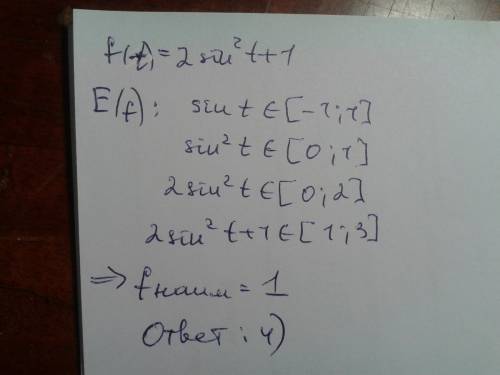 f(t) = 2 sin² t + 1
E(f): sin t ∈ [-1; 1]
sin² t ∈ [0; 1]
2 sin² t ∈ [0; 2]
2 sin² t + 1 ∈ [1; 3]
⇒ fнаим = 1
Ответ: 4)